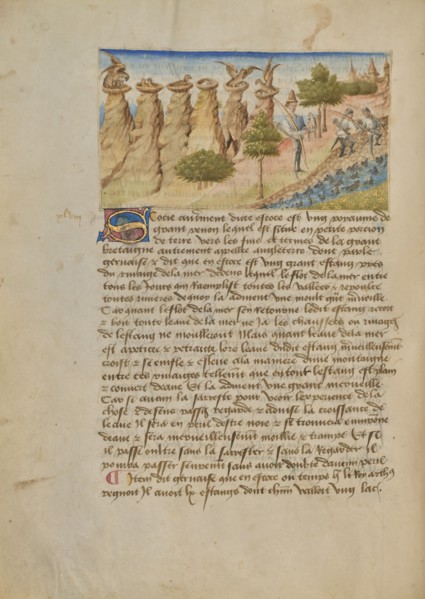 Socie autrement dicte escoce est ung royaume de
grant renon lequel est situe en petite porcion
de terre vers les fins et termes de la grant
bretaigne anciennement appellee angleterre dont parle
gervaise et dit que en escoce est ung grant estang pres
du rivage de la mer dedens lequel le flot de la mer entre
tous les jours qui raemplist toutes les vallees et
toutes rivieres de quoy la advient une moult grant merveille
Car quant le flot de la mer sen retourne ledit estang recoit
et boit toute leaue de la mer ne ja les chaussees ou rivages
de lestang ne moulleront Mais quant leaue de la mer
est et retraite lors leaue dudit estang merveilleusement
croist et se enfle et eslieve a la maniere dune montaigne
entre ces rivages tellement que tout lestang est plain
et couvert deaue Et la advient une grant merveille
Car se aucun la sarreste pour veoir lexperience de la
chose et regarde et la croissance de
leaue il sera en peu destre noie et se trouvera
deaue et sera merveilleusement moullie et trempe Et se
il passe oultre sans la sarrester et sans la regarder il
pourra passer seurement sans avoir doubte daucun peril
Item dit gervaise que en escoce ou temps que le Roy artus
regnoit Il avoit lx estangs dont chacun valloit ung lac